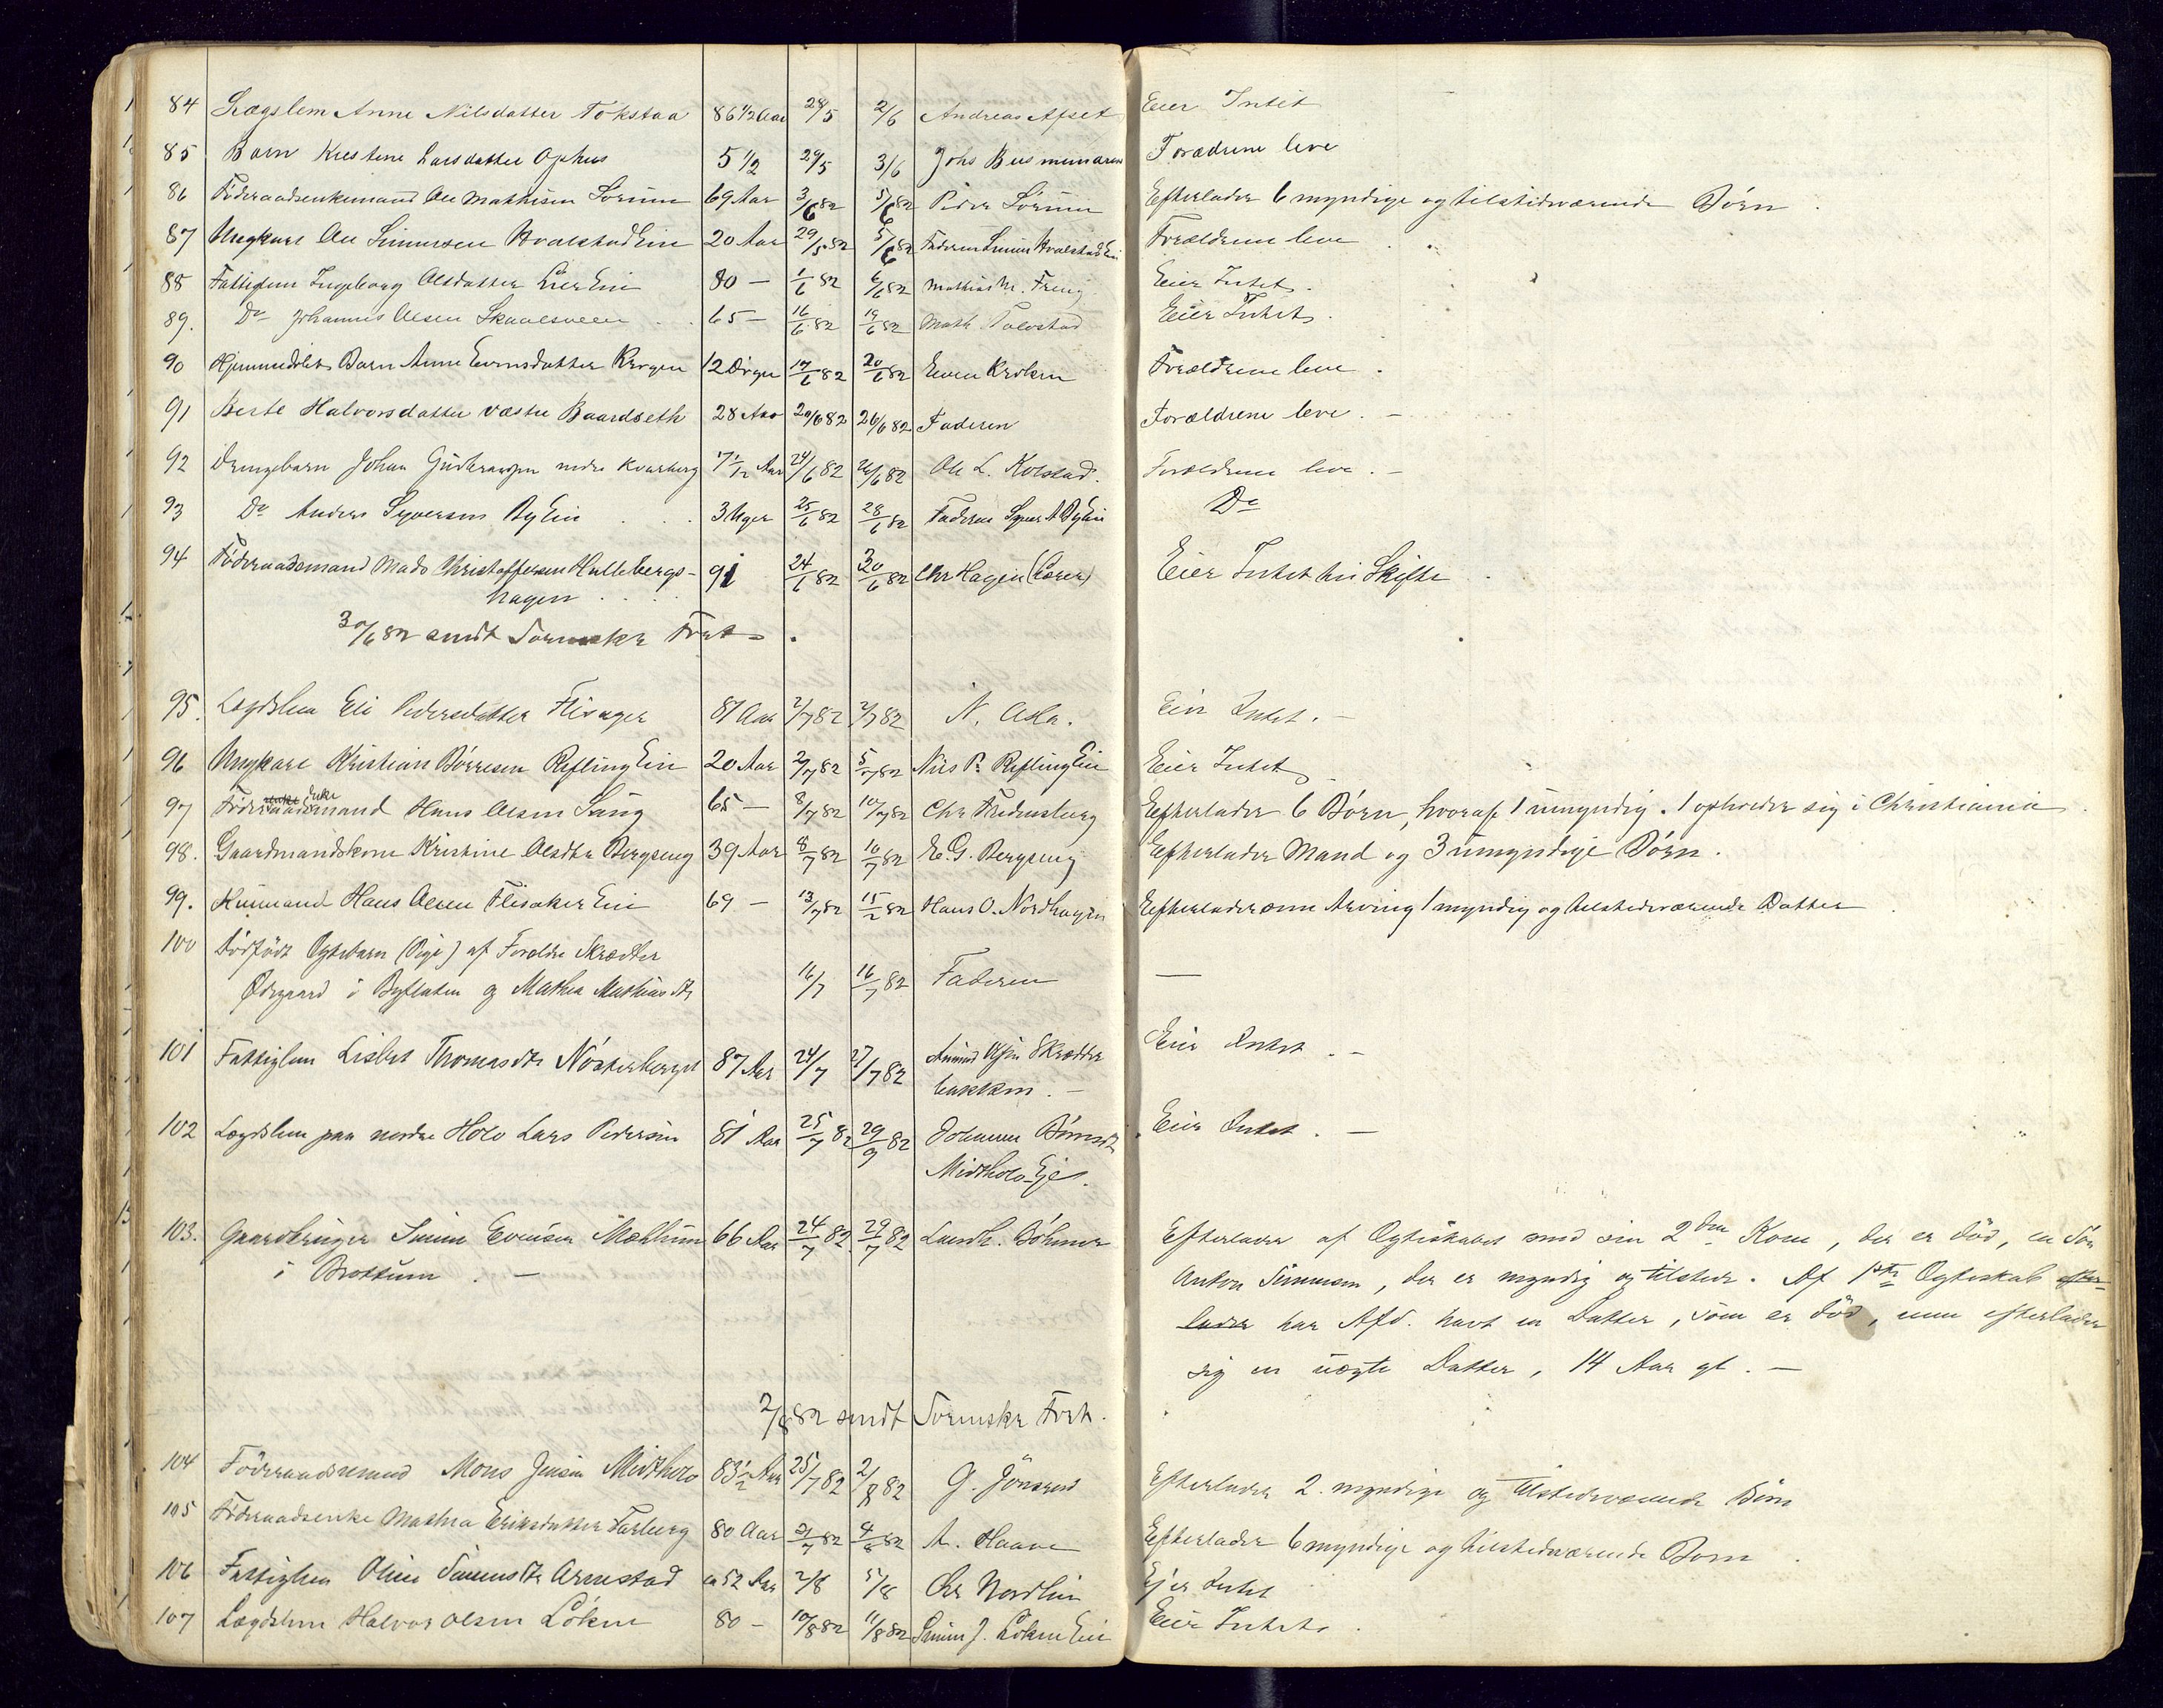 84 Lægslem Anne Nilsdatter Tokstad 86 1/2 Aar 28/5 2/6 Andreas Afset Eier Intet
85 Barn Kristine Larsdatter Ophus 5 1/2 29/5 3/6 Johs Forædrene leve
86 Föderaadsenkemand Ole Mathisen Sörum 69 Aar 3/6 82 5/6 82 Peder Sörum Efterlader 6 myndige og tilstedværende Börn.
87 Ungkarl Ole Simensen Hvalstad Eie 20 Aar 29/5 82 5/6 82 Faderen Simen Hvalstad Ei Forældrene leve
88 Fattiglem Ingeborg Olsdatter Lier Eie 80 — 1/6 82 6/6 82 Mathias M. Freng Eier Intet.
89. Do Johannes Olsen Skaaesveen 65 — 16/6 82 19/6 82 Math. Tolvstad Eier Intet.
90 Hjemmedöbt Barn Anne Evensdatter Krogen 12 Dögn 17/6 82 20/6 82 Even Kroken Forældrene leve.
91 Berte Halvorsdatter Væstre Baardseth 28 Aar 20/6 82 26/6 82 Faderen Forældrene leve. —
92 Drengebarn Johan Gudbrandsen nedre Kvarberg 7 1/12 Aar 24/6 82 26/6 82 Ole L. Kolstad. Forældrene leve. —
93 Do Anders Syversen By Eie 3 Uger 25/6 82 28/6 82 Faderen Syver A By Eie Do
94 Föderaadsmand Mads Christoffersen Hullebergs- 91 24/6 82 30/6 82 Chr Hagen (Lærer) Eier Intet til Skifte
hagen
30/6 82 sendt Sorenskr Fort.
95. Lægdslem Eli Pedersdatter Flisager 81 Aar 2/7 82 2/7 82 N. Asla. Eier Intet. —
96 Ungkarl Kristian Börresen Refling Eie 20 Aar 2/7 82 5/7 82 Nils P. Refling Eie Eier Intet
97 Föderaadsenkemand Hans Olsen Saug 65 — 8/7 82 10/7 82 Chr Fredensberg Efterlader 6 Börn, hvoraf 1 umyndig. 1 opholder sig i Christiania
98. Gaardmandskone Kristine Olsdtr Bergseng 39 Aar 8/7 82 10/7 82 E. G. Bergseng Efterlader Mand og 3 umyndige Börn.
99. Husmand Hans Olsen Flisaker Eie 69 — 13/7 82 15/7 82 Hans O. Nordhagen Efterlader som Arving 1 myndig og tilstedværende Datter
100 Dödfödt Ægtebarn (Pige) af Forældre Skrædder
Ødegaard i Byflaten og Mathea Mathiasdtr 16/7 16/7 82 Faderen —
101 Fattiglem Lisbet Thomasdtr Nösterberget 87 Aar 24/7 27/7 82 Amund Olsen Skrædder Eier Intet. —
bakken. —
102 Lægdslem paa nordre Holo Lars Pedersen 81 Aar 25/7 82 29/7 82 Johanne Eier Intet. —
Midtholo Eje.
103. Gaardbruger Simen Evensen Mæhlum 66 Aar 24/7 82 29/7 82 Landh. Böhmer Efterlader af Ægteskabet med sin 2den Kone, der er död, en Sön
i Brottum. — Anton Simensen, der er myndig og tilstede. Af 1ste Ægteskab efter-
lader har Afd. havt en Datter, som er död, men efterlader
sig en uægte Datter, 14 Aar gl. —
2/8 82 sendt Sorenskr Fort.
104 Föderaadsmand Mons Jensen Midtholo 83 1/2 Aar 25/7 82 2/8 82 G. Jönsrud Efterlader 2. myndige og tilstedeværende Börn
105 Föderaadsenke Mathea Eriksdatter Farberg 80 Aar 31/7 82 4/8 82 A. Haave Efterlader 6 myndige og tilstedværende Born
106 Fattiglem Oline Simensdtr Arnestad ca 52 Aar 2/8 5/8 Chr Nordlien Ejer Intet
107 Lægdslem Halvor Olsen Löken 80 — 10/8 82 11/8 82 Simen J. Löken Eie Eier Intet.